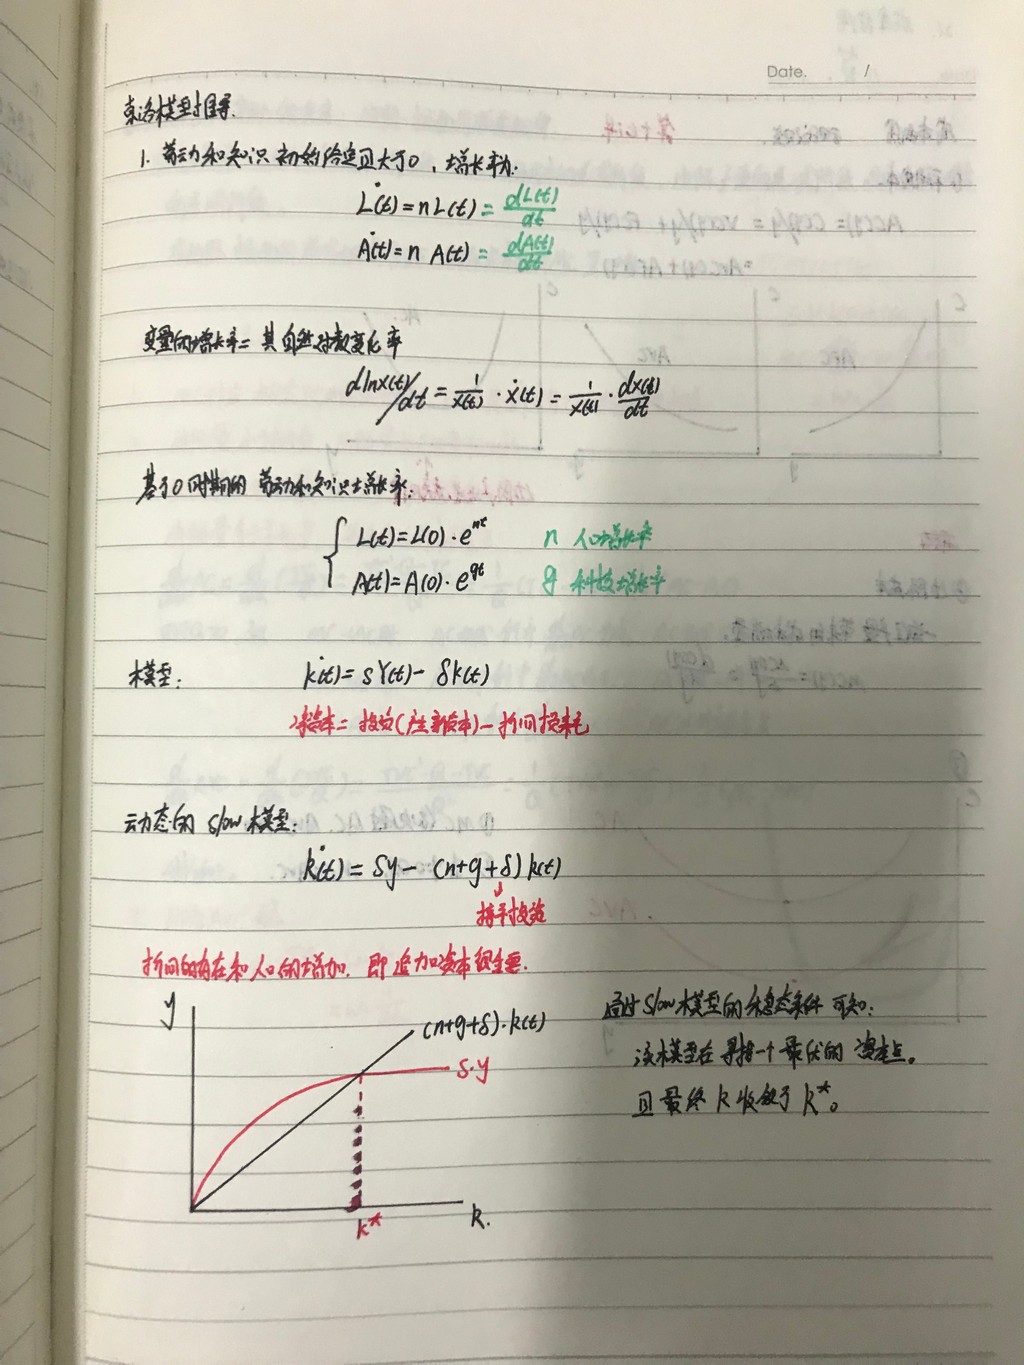 Date. /
索洛模型推导.
1. 劳动和知识初始给定且大于0，增长率为:
L̇(t) = n L(t) = dL(t)/dt
Ȧ(t) = n A(t) = dA(t)/dt
变量的增长率 = 其自然对数变化率
dlnx(t)/dt = 1/x(t) · ẋ(t) = 1/x(t) · dx(t)/dt
基于0时期的劳动和知识增长率:
L(t) = L(0) · e^nt n 人口增长率
A(t) = A(0) · e^gt g 科技增长率
模型: k̇(t) = sY(t) − δk(t)
净资本 = 投资(产生新资本) − 折旧损耗
动态的 Slow 模型:
k̇(t) = sy − (n+g+δ) k(t)
持平投资
折旧的存在和人口的增加, 即追加资本很重要.
y
(n+g+δ)·k(t)
s·y
k*
k.
通过 Slow 模型的稳态条件可知:
该模型在寻找一个最优的 点。
且最终 k 收敛于 k*。